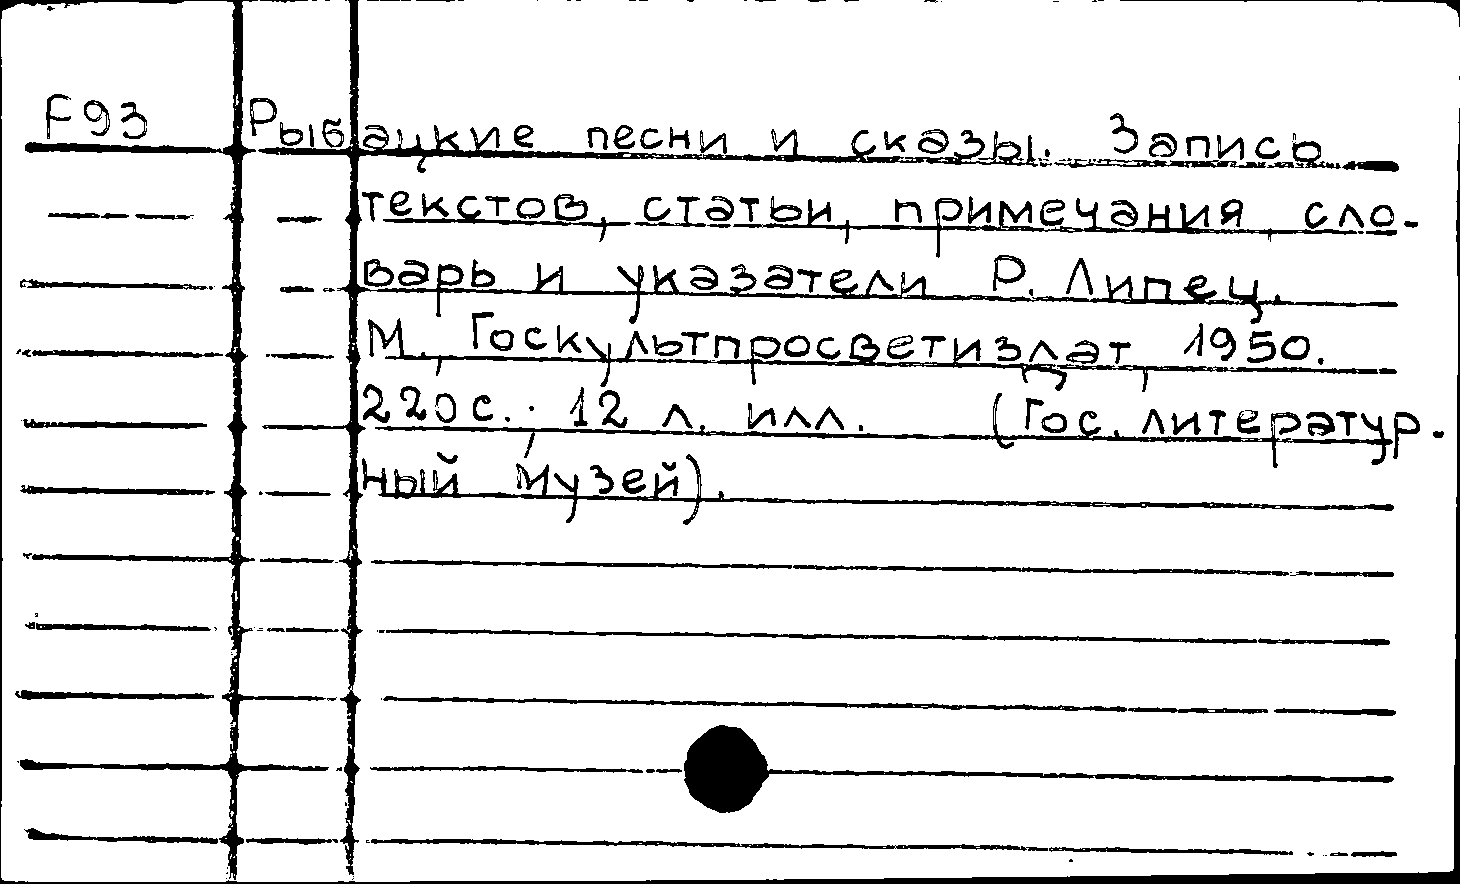 F93 Рыбацкие песни и сказы. Запись
текстов, статьи, примечания, сло-
варь и указатели Р. Липец.
М., Госкультпросветиздат, 1950.
220 с.; 12 л. илл. (Гос. литератур-
ный музей).